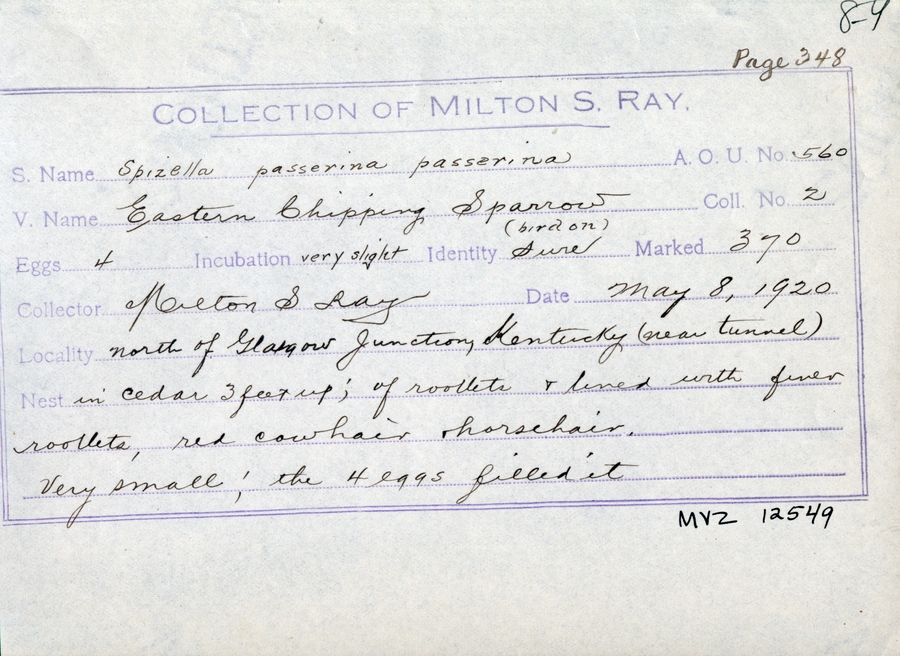 8-4
Page 348
COLLECTION OF MILTON S. RAY.
S. Name Spizella passerina passerina A. O. U. No. 560
V. Name Eastern Chipping Sparrow Coll. No. 2
(bird on)
Eggs 4 Incubation very slight Identity Sure Marked 370
Collector Milton S Ray Date May 8, 1920
Locality north of Glasgow Junction, Kentucky (near tunnel)
Nest in cedar 3 feet up; of rootlets & lined with finer
rootlets, red cowhair & horsehair.
Very small; the 4 eggs filled it
MVZ 12549